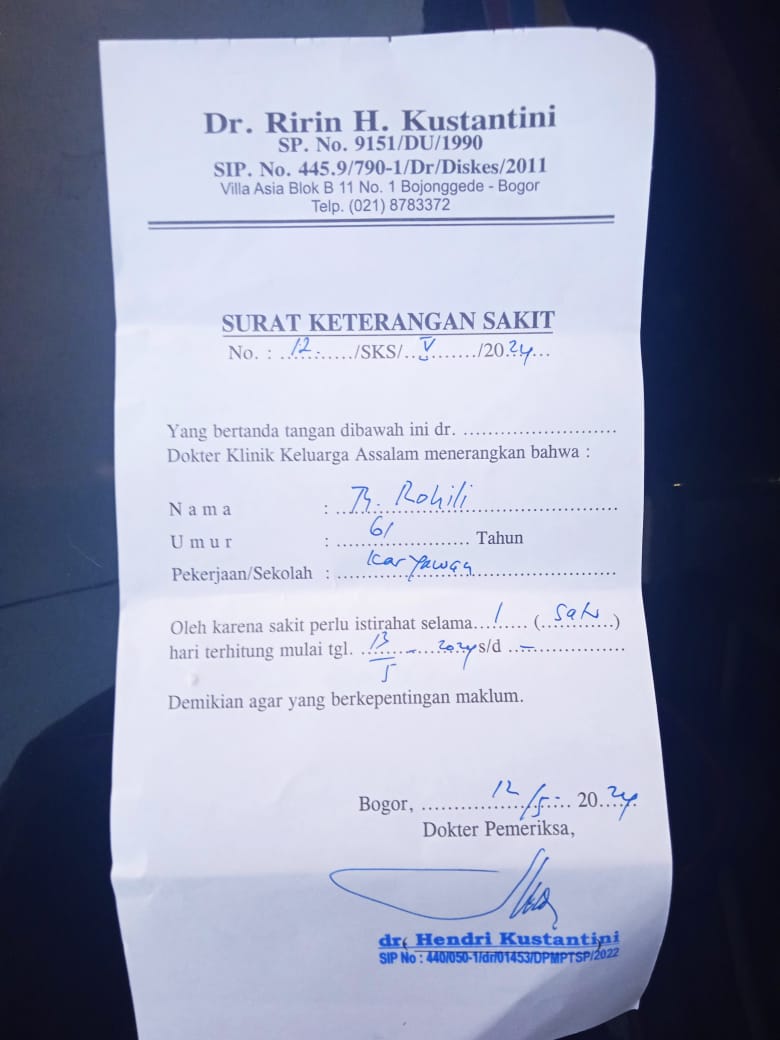 Dr. Ririn H. Kustantini
SP. No. 9151/DU/1990
SIP. No. 445.9/790-1/Dr/Diskes/2011
Villa Asia Blok B 11 No. 1 Bojonggede - Bogor
Telp. (021) 8783372
SURAT KETERANGAN SAKIT
No. : ...12.........../SKS/...V......../2024...
Yang bertanda tangan dibawah ini dr. ............................
Dokter Klinik Keluarga Assalam menerangkan bahwa :
Nama : Rohili
Umur : 61 Tahun
Pekerjaan/Sekolah : Karyawan
Oleh karena sakit perlu istirahat selama...1...... (...Satu...)
hari terhitung mulai tgl. 13/5 - 2024 s/d ...-...
Demikian agar yang berkepentingan maklum.
Bogor, 12/5- 2024
Dokter Pemeriksa,
dr. Hendri Kustantini
SIP No : 440/050-1/dr/01453/DPMPTSP/2022